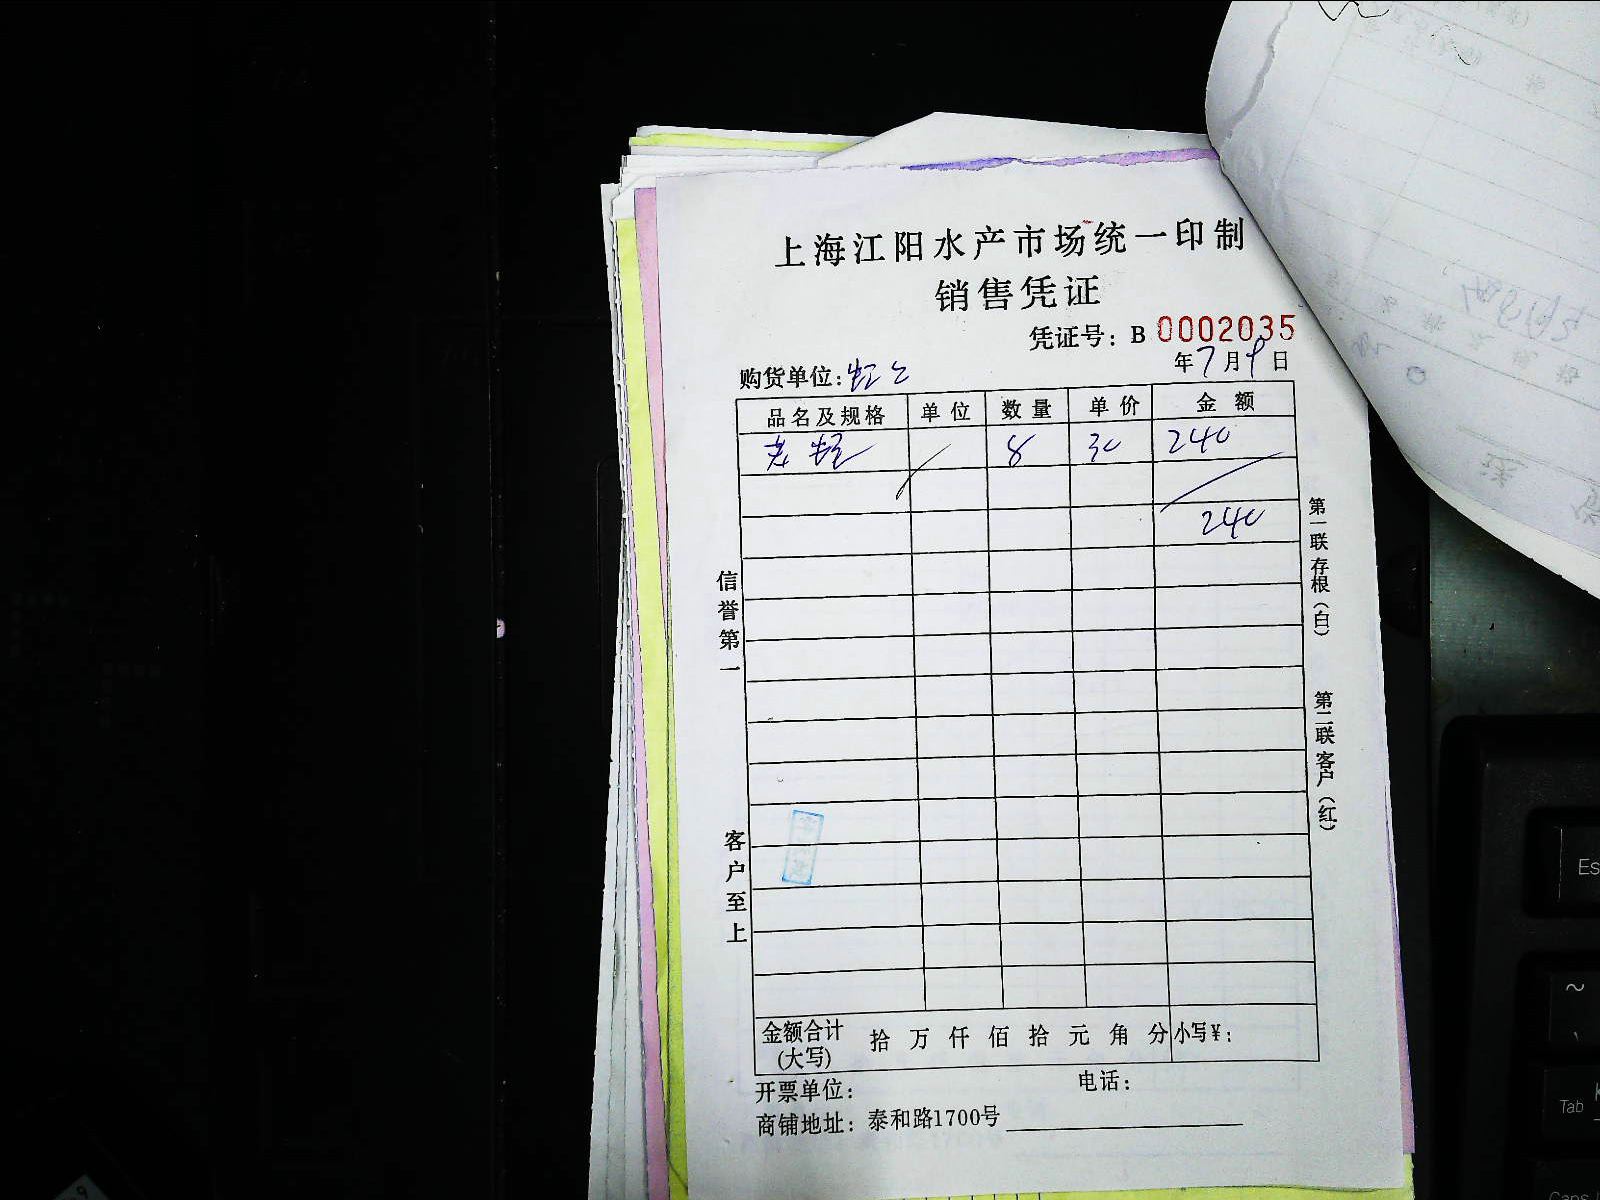 上海江阳水产市场统一印制
销售凭证
凭证号：B 0002035
年7月9日
购货单位：虹上
品名及规格 单位 数量 单价 金额
老蛏 8 30 240
240
信誉第一
客户至上
第一联存根（白）
第二联客户（红）
金额合计(大写) 拾万仟佰拾元角分 小写¥：
开票单位： 电话：
商铺地址：泰和路1700号
Es
~
Tab
Caps